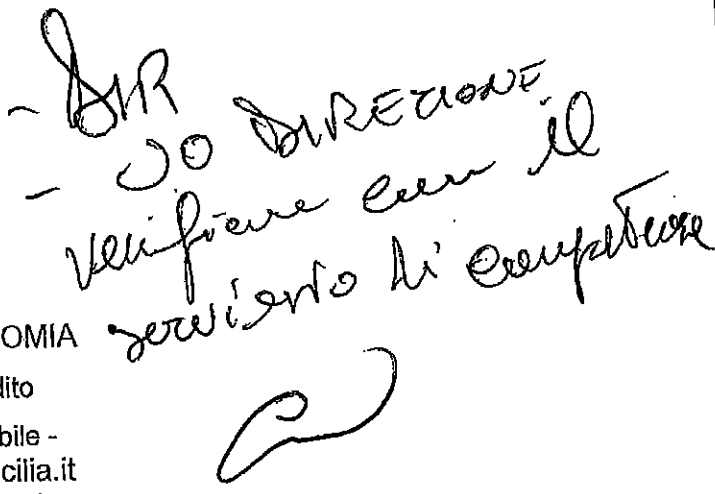 - DIR
- UO DIREZIONE
verificare con il
servizio di competenza
OMIA
dito
bile -
cilia.it